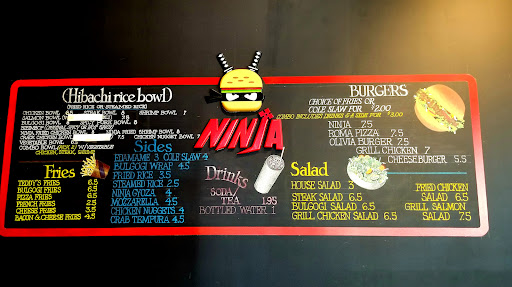 (Hibachi rice bowl)
(FRIED RICE OR STEAMED RICE)
CHICKEN BOWL
SHRIMP BOWL 7
SALMON BOWL
BULGOGI BOWL
VEGETABLE BOWL 6.5
Fries
TEDDY'S FRIES 6.5
BULGOGI FRIES 6.5
PIZZA FRIES 6.5
FRENCH FRIES 2.5
CHEESE FRIES 3.5
BACON & CHEESE FRIES 4.5
Sides
EDAMAME 3 COLE SLAW 4
BULGOGI WRAP 4.5
FRIED RICE 3.5
STEAMED RICE 2.5
NINJA GYOZA 4
MOZZARELLA 4.5
CHICKEN NUGGETS 4
CRAB TEMPURA 4.5
NINJA
Drinks
SODA/
TEA 1.95
BOTTLED WATER 1
BURGERS
CHOICE OF FRIES OR
COLE SLAW FOR $2.00
COMBO INCLUDES DRINKS & A SIDE FOR $3.00
NINJA 7.5
ROMA PIZZA 7.5
OLIVIA BURGER 7.5
GRILL CHICKEN 7
CHEESEBURGER 5.5
Salad
HOUSE SALAD 3
STEAK SALAD 6.5
BULGOGI SALAD 6.5
GRILL CHICKEN SALAD 6.5
FRIED CHICKEN
SALAD 6.5
GRILL SALMON
SALAD 7.5